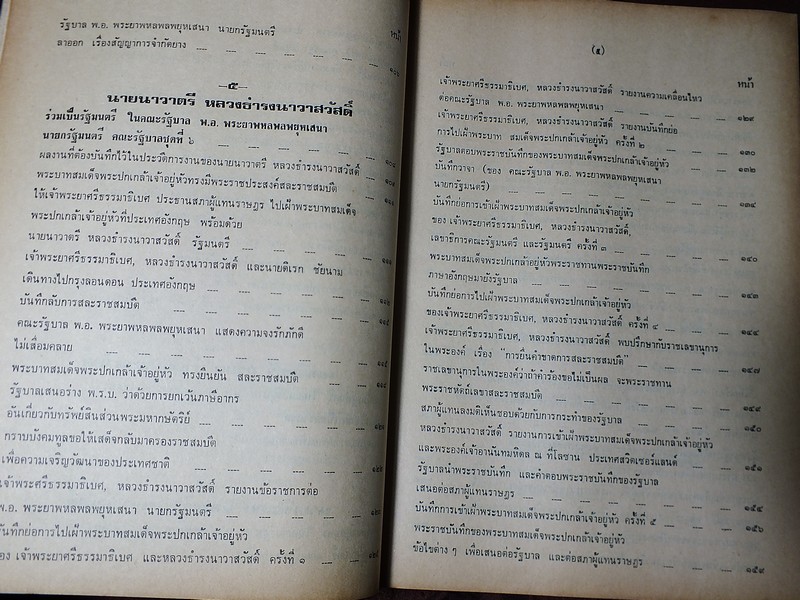 รัฐบาล พ.อ. พระยาพหลพลพยุหเสนา นายกรัฐมนตรี
หน้า
ลาออก เรื่องสัญญาการจำกัดยาง
—๕—
นายนาวาตรี หลวงธำรงนาวาสวัสดิ์
ร่วมเป็นรัฐมนตรี ในคณะรัฐบาล พ.อ. พระยาพหลพลพยุหเสนา
นายกรัฐมนตรี คณะรัฐบาลชุดที่ ๖
ผลงานที่ต้องบันทึกไว้ในประวัติการงานของนายนาวาตรี หลวงธำรงนาวาสวัสดิ์
พระบาทสมเด็จพระปกเกล้าเจ้าอยู่หัวทรงมีพระราชประสงค์สละราชสมบัติ
ให้เจ้าพระยาศรีธรรมาธิเบศ ประธานสภาผู้แทนราษฎร ไปเฝ้าพระบาทสมเด็จ
พระปกเกล้าเจ้าอยู่หัวที่ประเทศอังกฤษ พร้อมด้วย
นายนาวาตรี หลวงธำรงนาวาสวัสดิ์ รัฐมนตรี
เจ้าพระยาศรีธรรมาธิเบศ, หลวงธำรงนาวาสวัสดิ์ และนายดิเรก ชัยนาม
เดินทางไปกรุงลอนดอน ประเทศอังกฤษ
บันทึกลับการสละราชสมบัติ
คณะรัฐบาล พ.อ. พระยาพหลพลพยุหเสนา แสดงความจงรักภักดี
ไม่เสื่อมคลาย
พระบาทสมเด็จพระปกเกล้าเจ้าอยู่หัว ทรงยืนยัน สละราชสมบัติ
รัฐบาลเสนอร่าง พ.ร.บ. ว่าด้วยการยกเว้นภาษีอากร
อันเกี่ยวกับทรัพย์สินส่วนพระมหากษัตริย์
กราบบังคมทูลขอให้เสด็จกลับมาครองราชสมบัติ
เพื่อความเจริญวัฒนาของประเทศชาติ
เจ้าพระศรีธรรมาธิเบศ, หลวงธำรงนาวาสวัสดิ์ รายงานข้อราชการต่อ
พ.อ. พระยาพหลพลพยุหเสนา นายกรัฐมนตรี
บันทึกย่อการไปเฝ้าพระบาทสมเด็จพระปกเกล้าเจ้าอยู่หัว
ของ เจ้าพระยาศรีธรรมาธิเบศ และหลวงธำรงนาวาสวัสดิ์ ครั้งที่ ๑
(๕)
หน้า
เจ้าพระยาศรีธรรมาธิเบศ, หลวงธำรงนาวาสวัสดิ์ รายงานความเคลื่อนไหว
ต่อคณะรัฐบาล พ.อ. พระยาพหลพลพยุหเสนา ๑๒๙
เจ้าพระยาศรีธรรมาธิเบศ, หลวงธำรงนาวาสวัสดิ์ รายงานบันทึกย่อ
การไปเฝ้าพระบาท สมเด็จพระปกเกล้าเจ้าอยู่หัว ครั้งที่ ๒ ๑๓๐
รัฐบาลตอบพระราชบันทึกของพระบาทสมเด็จพระปกเกล้าเจ้าอยู่หัว ๑๓๒
บันทึกราจา (ของ คณะรัฐบาล พ.อ. พระยาพหลพลพยุหเสนา
นายกรัฐมนตรี) ๑๓๔
บันทึกย่อการเข้าเฝ้าพระบาทสมเด็จพระปกเกล้าเจ้าอยู่หัว
ของ เจ้าพระยาศรีธรรมาธิเบศ, หลวงธำรงนาวาสวัสดิ์,
เลขาธิการคณะรัฐมนตรี และรัฐมนตรี ครั้งที่ ๓ ๑๔๐
พระบาทสมเด็จพระปกเกล้าเจ้าอยู่หัวพระราชทานพระราชบันทึก
ภาษาอังกฤษมายังรัฐบาล ๑๔๓
บันทึกย่อการไปเฝ้าพระบาทสมเด็จพระปกเกล้าเจ้าอยู่หัว
ของเจ้าพระยาศรีธรรมาธิเบศ, หลวงธำรงนาวาสวัสดิ์ ครั้งที่ ๔ ๑๔๔
เจ้าพระยาศรีธรรมาธิเบศ, หลวงธำรงนาวาสวัสดิ์ พบปรึกษากับราชเลขานุการ
ในพระองค์ เรื่อง "การยื่นคำขาดการสละราชสมบัติ" ๑๔๗
ราชเลขานุการในพระองค์ว่าถ้าคำร้องขอไม่เป็นผล จะพระราชทาน
พระราชหัตถ์เลขาสละราชสมบัติ ๑๔๙
สภาผู้แทนลงมติเห็นชอบด้วยกับการกระทำของรัฐบาล ๑๕๐
หลวงธำรงนาวาสวัสดิ์ รายงานการเข้าเฝ้าพระบาทสมเด็จพระปกเกล้าเจ้าอยู่หัว
และพระองค์เจ้าอานันทมหิดล ณ ที่โลซาน ประเทศสวิตเซอร์แลนด์ ๑๕๑
รัฐบาลนำพระราชบันทึก และคำตอบพระราชบันทึกของรัฐบาล
เสนอต่อสภาผู้แทนราษฎร ๑๕๔
บันทึกการเข้าเฝ้าพระบาทสมเด็จพระปกเกล้าเจ้าอยู่หัว ครั้งที่ ๕ ๑๕๖
พระราชบันทึกของพระบาทสมเด็จพระปกเกล้าเจ้าอยู่หัว
ข้อไขต่าง ๆ เพื่อเสนอต่อรัฐบาล และต่อสภาผู้แทนราษฎร ๑๕๙